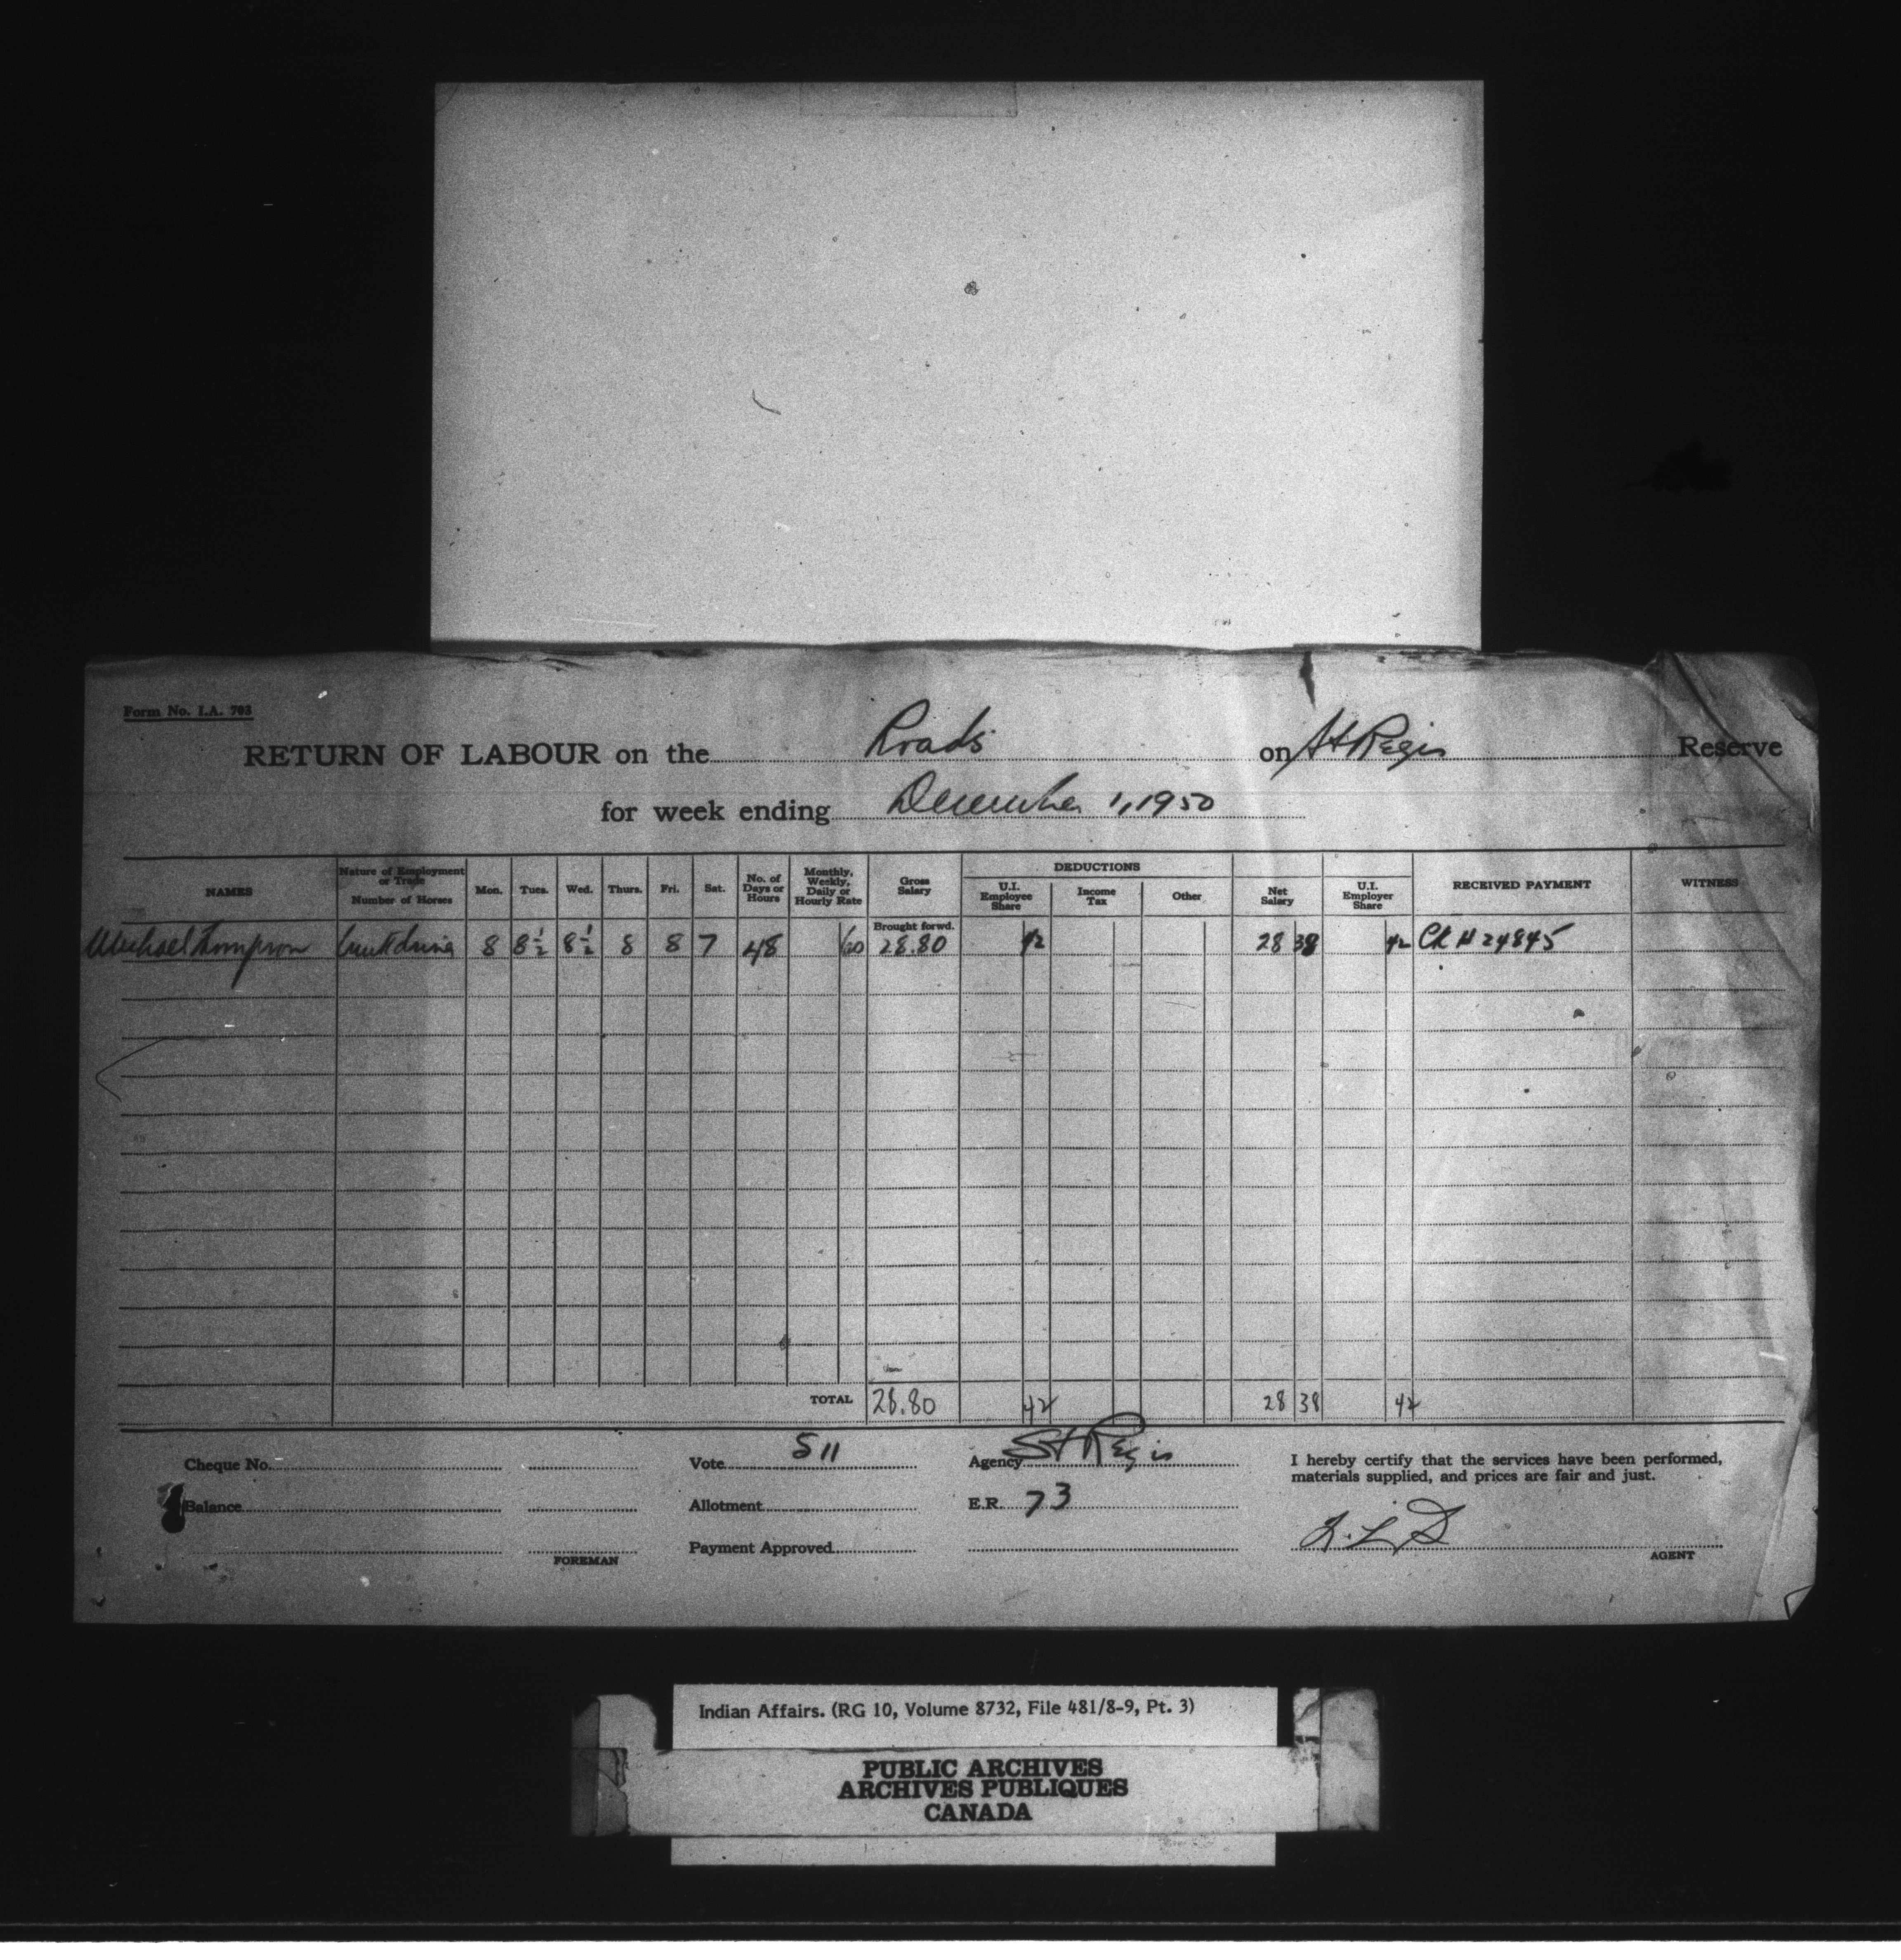 Form No. I.A. 703
RETURN OF LABOUR on the Roads on St Regis Reserve
for week ending December 1, 1950
NAMES Nature of Employment or Trade Number of Horses Mon. Tues. Wed. Thurs. Fri. Sat. No. of Days or Hours Monthly, Weekly, Daily or Hourly Rate Gross Salary DEDUCTIONS U.I. Employee Share Income Tax Other Net Salary U.I. Employer Share RECEIVED PAYMENT WITNESS
Brought forwd.
Michael Thompson truck driver 8 8 1/2 8 1/2 8 8 7 48 60 28.80 42 28 38 42 CK # 24845
TOTAL 28.80 42 28 38 42
Cheque No. Vote 511 Agency St Regis I hereby certify that the services have been performed,
materials supplied, and prices are fair and just.
Balance Allotment E.R. 73
Payment Approved
FOREMAN AGENT
Indian Affairs. (RG 10, Volume 8732, File 481/8-9, Pt. 3)
PUBLIC ARCHIVES
ARCHIVES PUBLIQUES
CANADA